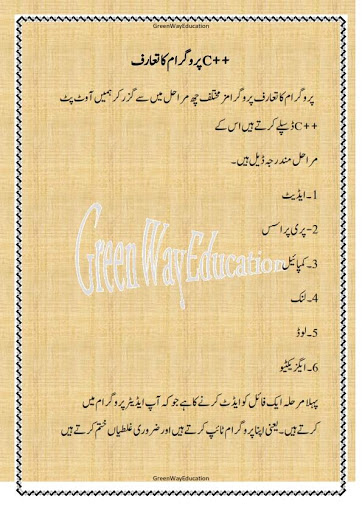 GreenWayEducation
C++ پروگرام کا تعارف
پروگرام کا تعارف پروگرامز مختلف چھ مراحل میں سے گزر کر ہمیں آوٹ پٹ
C++ ڈسپلے کرتے ہیں اس کے
مراحل مندرجہ ڈیل ہیں۔
1۔ایڈیٹ
2-پری پراسس
3۔کمپائیل
4۔لنک
5۔لوڈ
6۔ایگزیکٹیو
GreenWayEducation
پہلا مرحلہ ایک فائل کو ایڈٹ کرنے کا ہے جو کہ آپ ایڈیٹر پروگرام میں
کرتے ہیں۔یعنی اپنا پروگرام ٹائپ کرتے ہیں اور ضروری غلطیاں ختم کرتے ہیں
GreenWayEducation